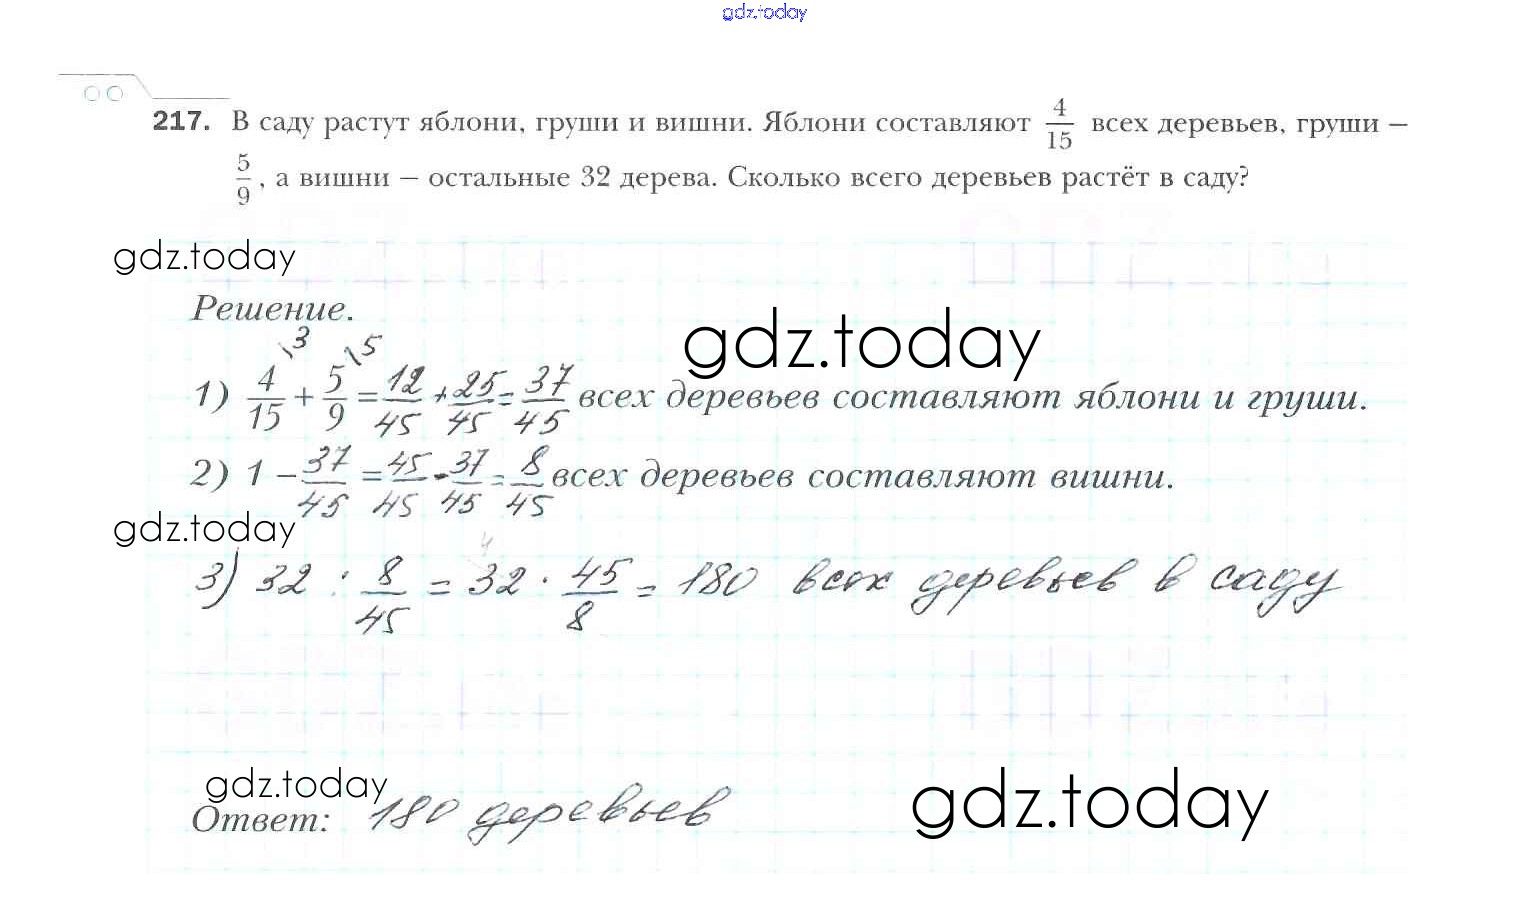 gdz.today
217. В саду растут яблони, груши и вишни. Яблони составляют 4/15 всех деревьев, груши –
5/9, а вишни – остальные 32 дерева. Сколько всего деревьев растёт в саду?
gdz.today
Решение.
gdz.today
1) 4/15 \3 + 5/9 \5 = 12/45 + 25/45 = 37/45 всех деревьев составляют яблони и груши.
2) 1 – 37/45 = 45/45 - 37/45 = 8/45 всех деревьев составляют вишни.
gdz.today
3) 32 : 8/45 = 32 · 45/8 = 180 всех деревьев в саду
gdz.today
Ответ: 180 деревьев
gdz.today